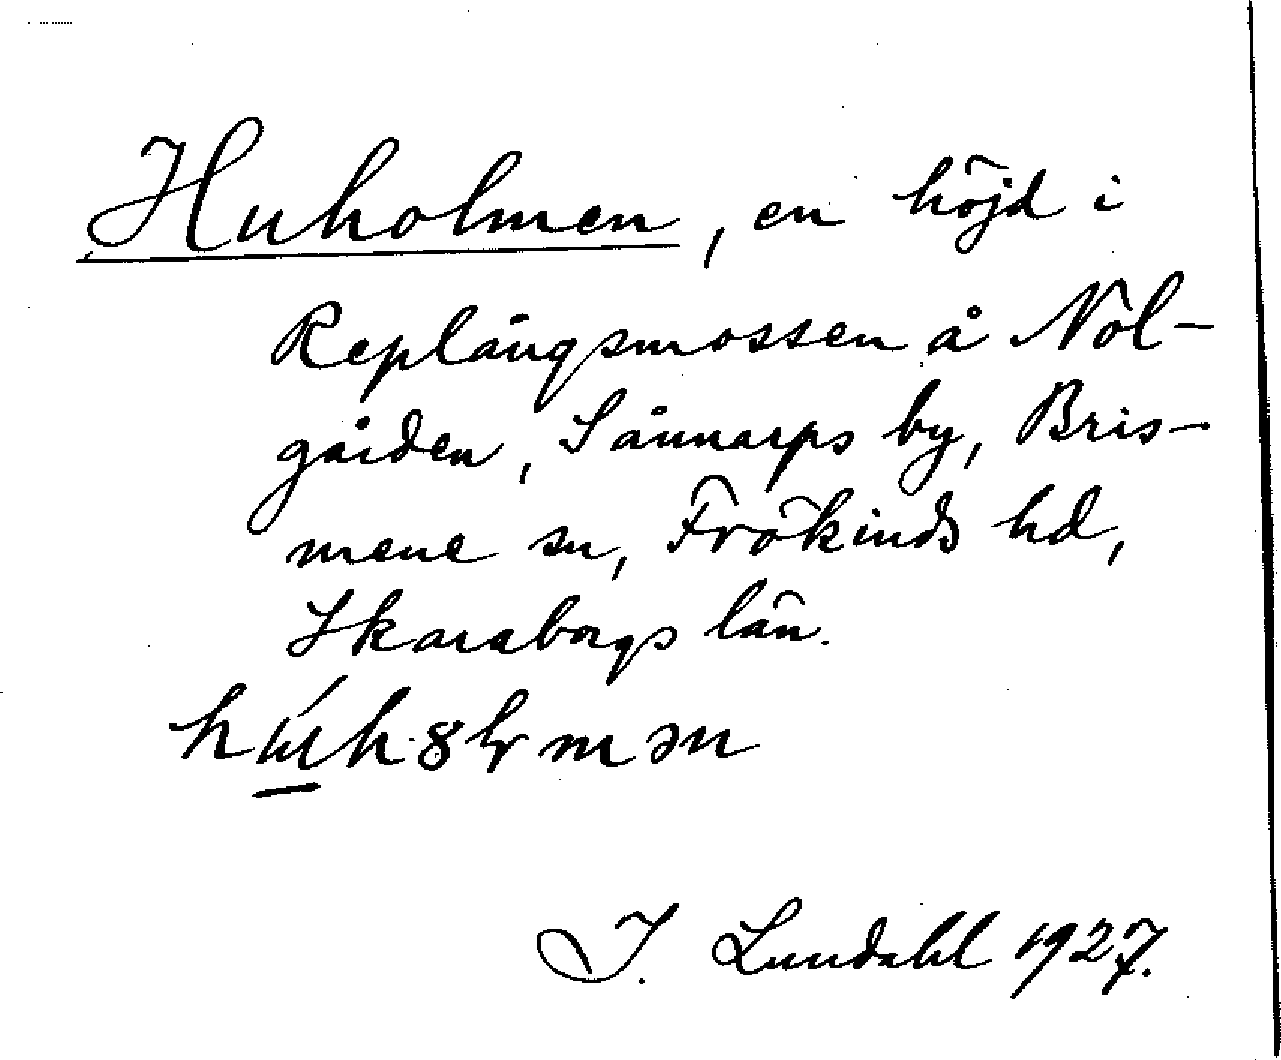 Huholmen, en höjd i
Replångsmossen å Nol-
gården, Sännarps by, Bris-
mene sn, Frökinds hd,
Skaraborgs län.
I. Lundahl 1927.